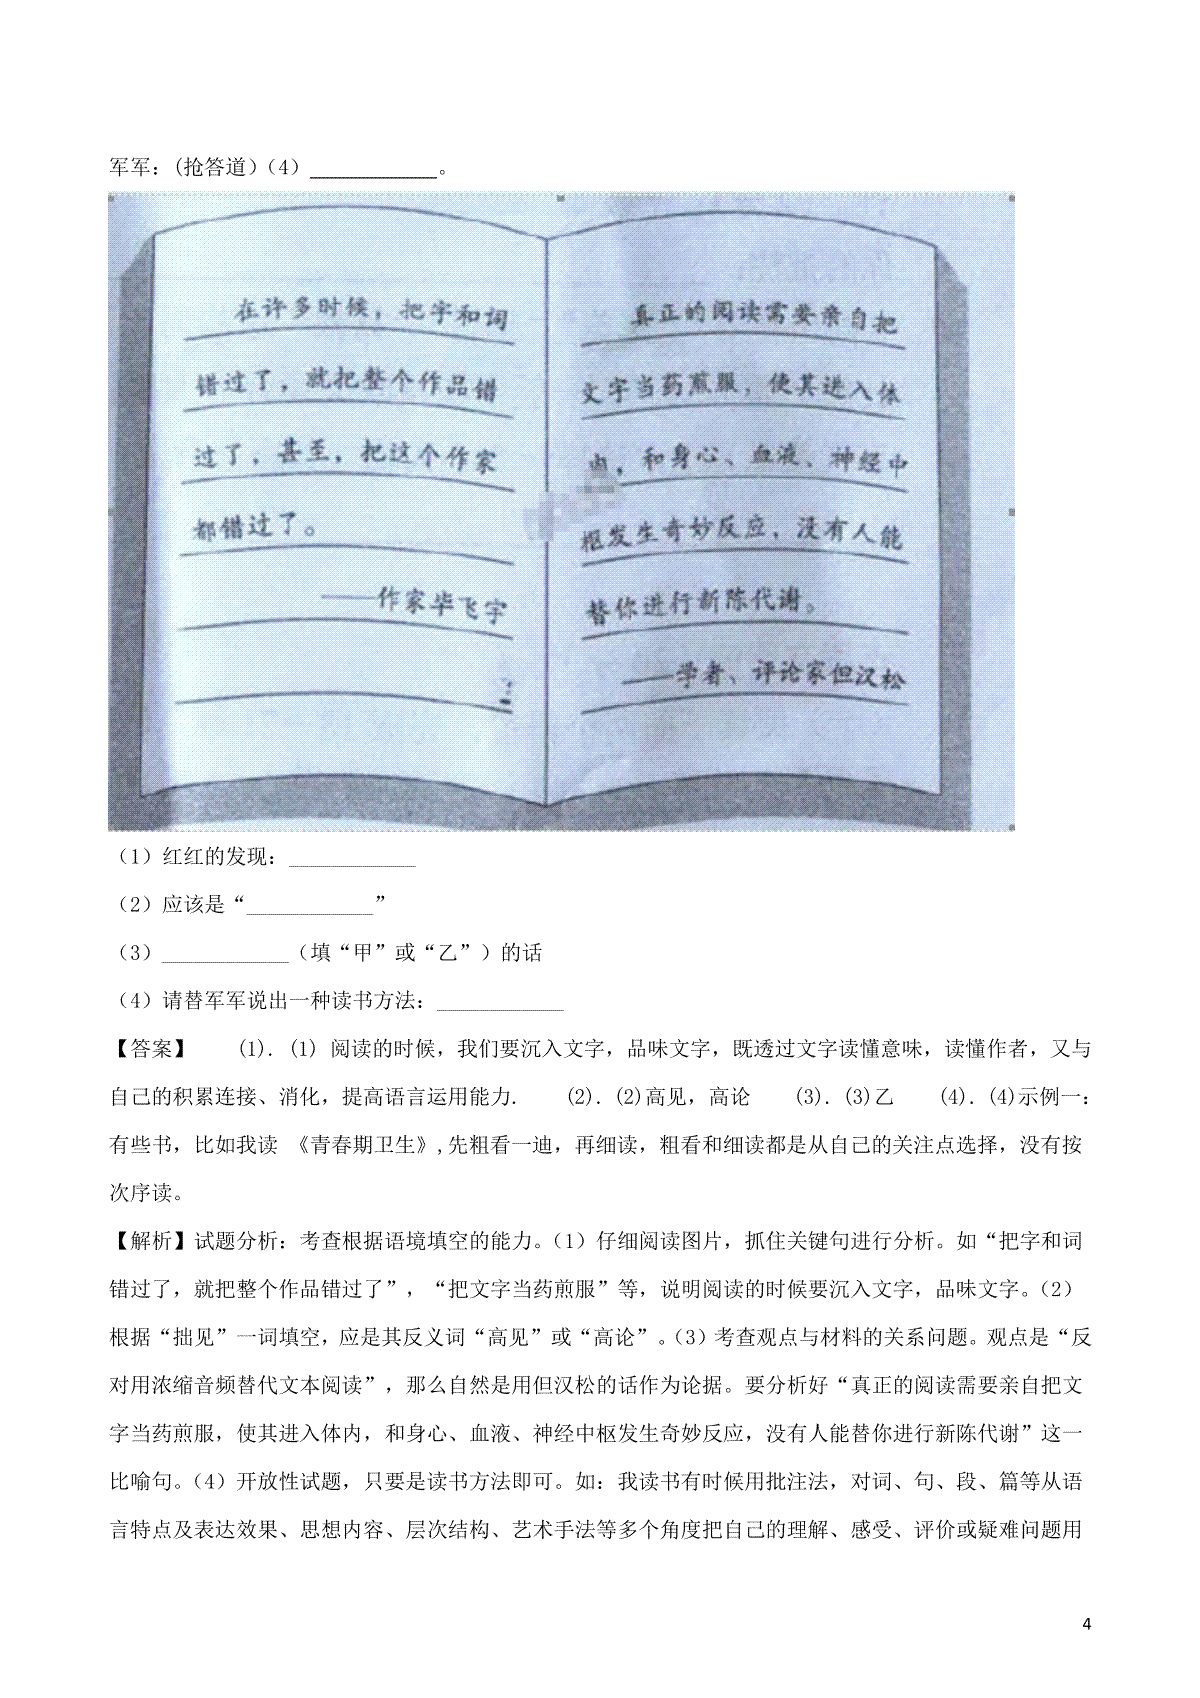 军军：(抢答道)（4）____________。
在许多时候，把字和词
错过了，就把整个作品错
过了，甚至，把这个作家
都错过了。
——作家毕飞宇
真正的阅读需要亲自把
文字当药煎服，使其进入体
内，和身心、血液、神经中
枢发生奇妙反应，没有人能
替你进行新陈代谢。
——学者、评论家但汉松
（1）红红的发现：____________
（2）应该是“____________”
（3）____________（填“甲”或“乙”）的话
（4）请替军军说出一种读书方法：____________
【答案】 (1). (1) 阅读的时候，我们要沉入文字，品味文字，既透过文字读懂意味，读懂作者，又与
自己的积累连接、消化，提高语言运用能力. (2). (2)高见，高论 (3). (3)乙 (4). (4)示例一：
有些书，比如我读 《青春期卫生》,先粗看一迪，再细读，粗看和细读都是从自己的关注点选择，没有按
次序读。
【解析】试题分析：考查根据语境填空的能力。（1）仔细阅读图片，抓住关键句进行分析。如“把字和词
错过了，就把整个作品错过了”，“把文字当药煎服”等，说明阅读的时候要沉入文字，品味文字。（2）
根据“拙见”一词填空，应是其反义词“高见”或“高论”。（3）考查观点与材料的关系问题。观点是“反
对用浓缩音频替代文本阅读”，那么自然是用但汉松的话作为论据。要分析好“真正的阅读需要亲自把文
字当药煎服，使其进入体内，和身心、血液、神经中枢发生奇妙反应，没有人能替你进行新陈代谢”这一
比喻句。（4）开放性试题，只要是读书方法即可。如：我读书有时候用批注法，对词、句、段、篇等从语
言特点及表达效果、思想内容、层次结构、艺术手法等多个角度把自己的理解、感受、评价或疑难问题用
4